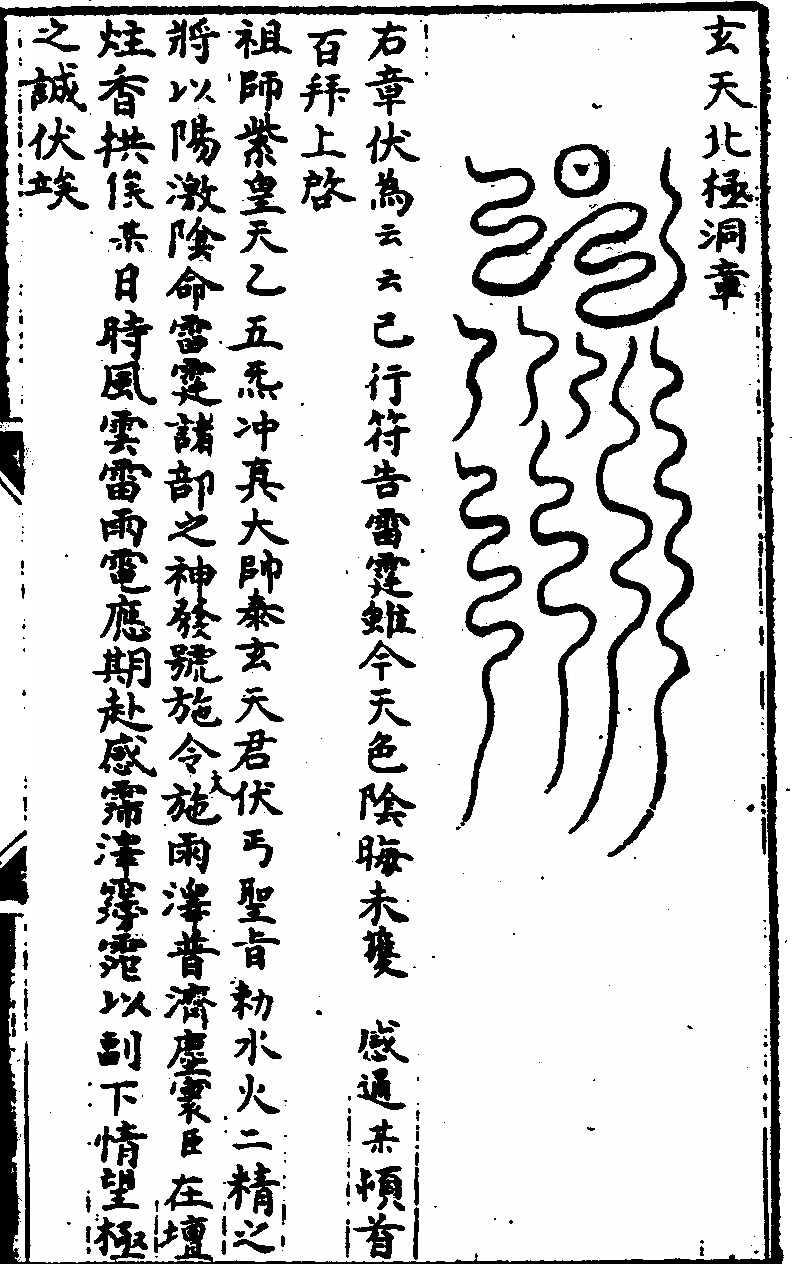 玄天北極洞章
右章伏為云云已行符告雷霆雖今天色陰晦未獲　感通某頓首
百拜上啓
祖師紫皇天乙五炁冲真大帥泰玄天君伏丐聖旨勑水火二精之
將以陽激陰命雷霆諸部之神發號施令大施雨澤普濟塵寰臣在壇
炷香拱俟某日時風雲雷雨電應期赴感霈澤霶霑以副下情望極
之誠伏竢